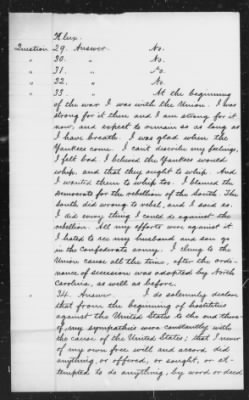 Question 29. Answer. No.
" 30. " No.
" 31. " No.
" 32. " No.
" 33. " At the beginning
of the war I was with the Union. I was
strong for it then and I am strong for it
now, and expect to remain so as long as
I have breath. I was glad when the
Yankees come. I can't describe my feelings,
I felt bad. I believed the Yankees would
whip, and that they ought to whip. And
I wanted them to whip too. I blamed the
Democrats for the rebellion of the South. The
South did wrong to rebel, and I said so.
I did every thing I could do against the
rebellion. All my efforts were against it
I hated to see my husband and son go
in the Confederate army. I clung to the
Union cause all the time, after the ordi-
nance of secession was adopted by North
Carolina, as well as before.
" 34. Answer. I do solemnly declare
that from the beginning of hostilities
against the United States to the end there-
of, my sympathies were constantly with
the cause of the United States; that I never
of my own free will and accord did
anything, or offered, or sought, or at-
tempted to do anything, by word or deed